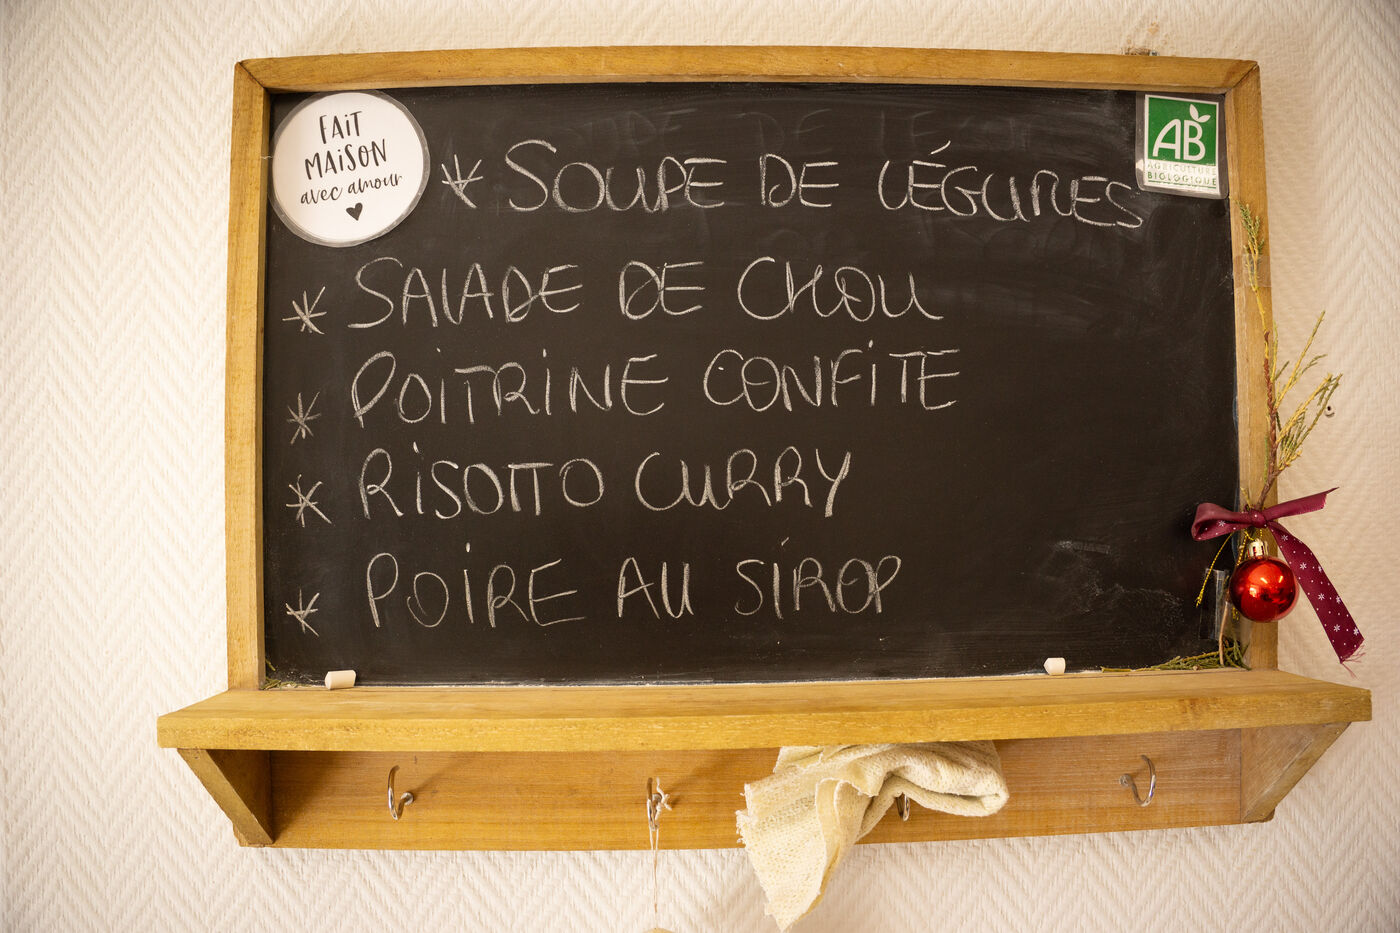 FAIT
MAISON
avec amour
* SOUPE DE LÉGUMES
* SALADE DE CHOU
* POITRINE CONFITE
* RISOTTO CURRY
* POIRE AU SIROP
AB
AGRICULTURE
BIOLOGIQUE